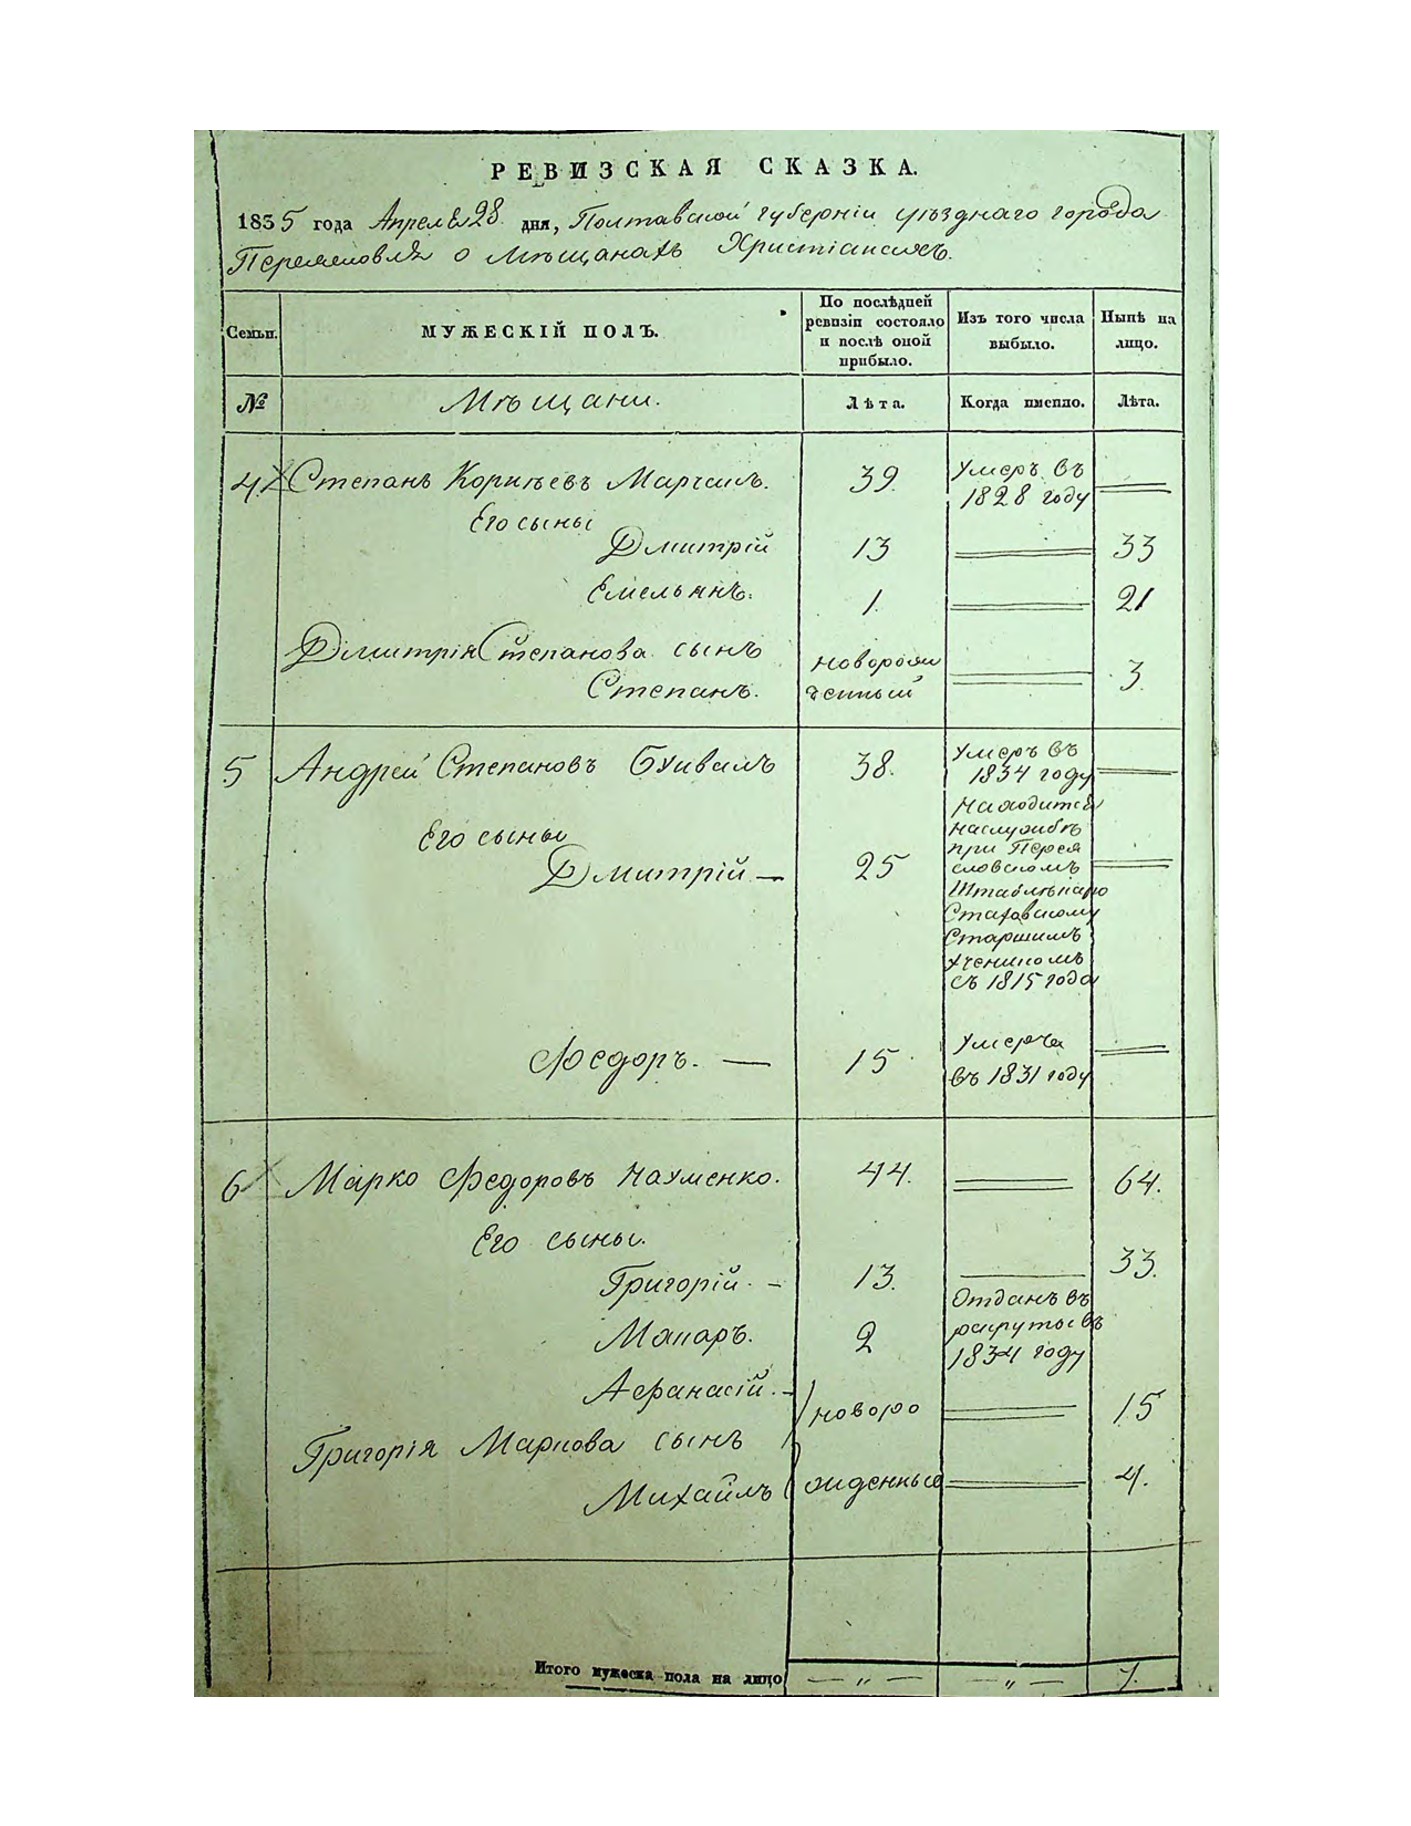 РЕВИЗСКАЯ СКАЗКА.
1835 года Апреля 28 дня, Полтавской губерніи уѣзднаго города
Переяславля о Мѣщанахъ Христіанахъ.
Семьи.
МУЖЕСКІЙ ПОЛЪ.
По послѣдней ревизіи состояло и послѣ оной прибыло.
Изъ того числа выбыло.
Нынѣ на лицо.
№ Мѣщани. Лѣта. Когда имянно. Лѣта.
4 Степанъ Корнѣевъ 39. Умеръ въ
1828 году
Его сыны
Дмитрій 13 33
Емельянъ. 1. 21
Дмитрія Степанова сынъ новорож
Степанъ. денный 3.
5 Андрей Степановъ 38. Умеръ въ
1834 году
Его сыны
Дмитрій — 25
Находится
на службѣ
при Перея
славскомъ
Старшимъ
ученикомъ
съ 1815 года
Федоръ. — 15 Умеръ
въ 1831 году
6 Марко Федоровъ Науменко. 44. 64.
Его сыны.
Григорій. - 13. 33.
Макаръ. 2 Отданъ въ
рекруты въ
1834 году
Афанасій. - новоро 15
Григорія Маркова сынъ
Михайлъ жденные 4.
Итого мужеска пола на лицо — „ — — „ — 7.